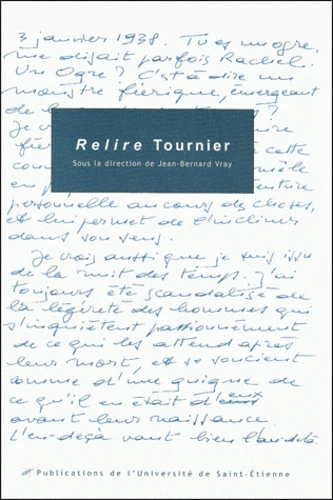 3 janvier 1938. Tu es un ogre,
me disait parfois Rachel.
Un Ogre ? C'est-à-dire un
monstre féerique, émergeant
de la
Relire Tournier
Sous la direction de Jean-Bernard Vray
cette
en
personnelle au cours des choses,
et lui permet de l'incliner
dans son sens.
Je crois aussi que je suis issu
de la nuit des temps. J'ai
toujours été scandalisé de
la légèreté des hommes qui
s'inquiètent passionnément
de ce qui les attend après
leur mort, et se soucient
comme d'une guigne de
ce qu'il en était d'eux
avant leur naissance.
L'en-deçà vaut bien l'au-delà.
Publications de l'Université de Saint-Étienne